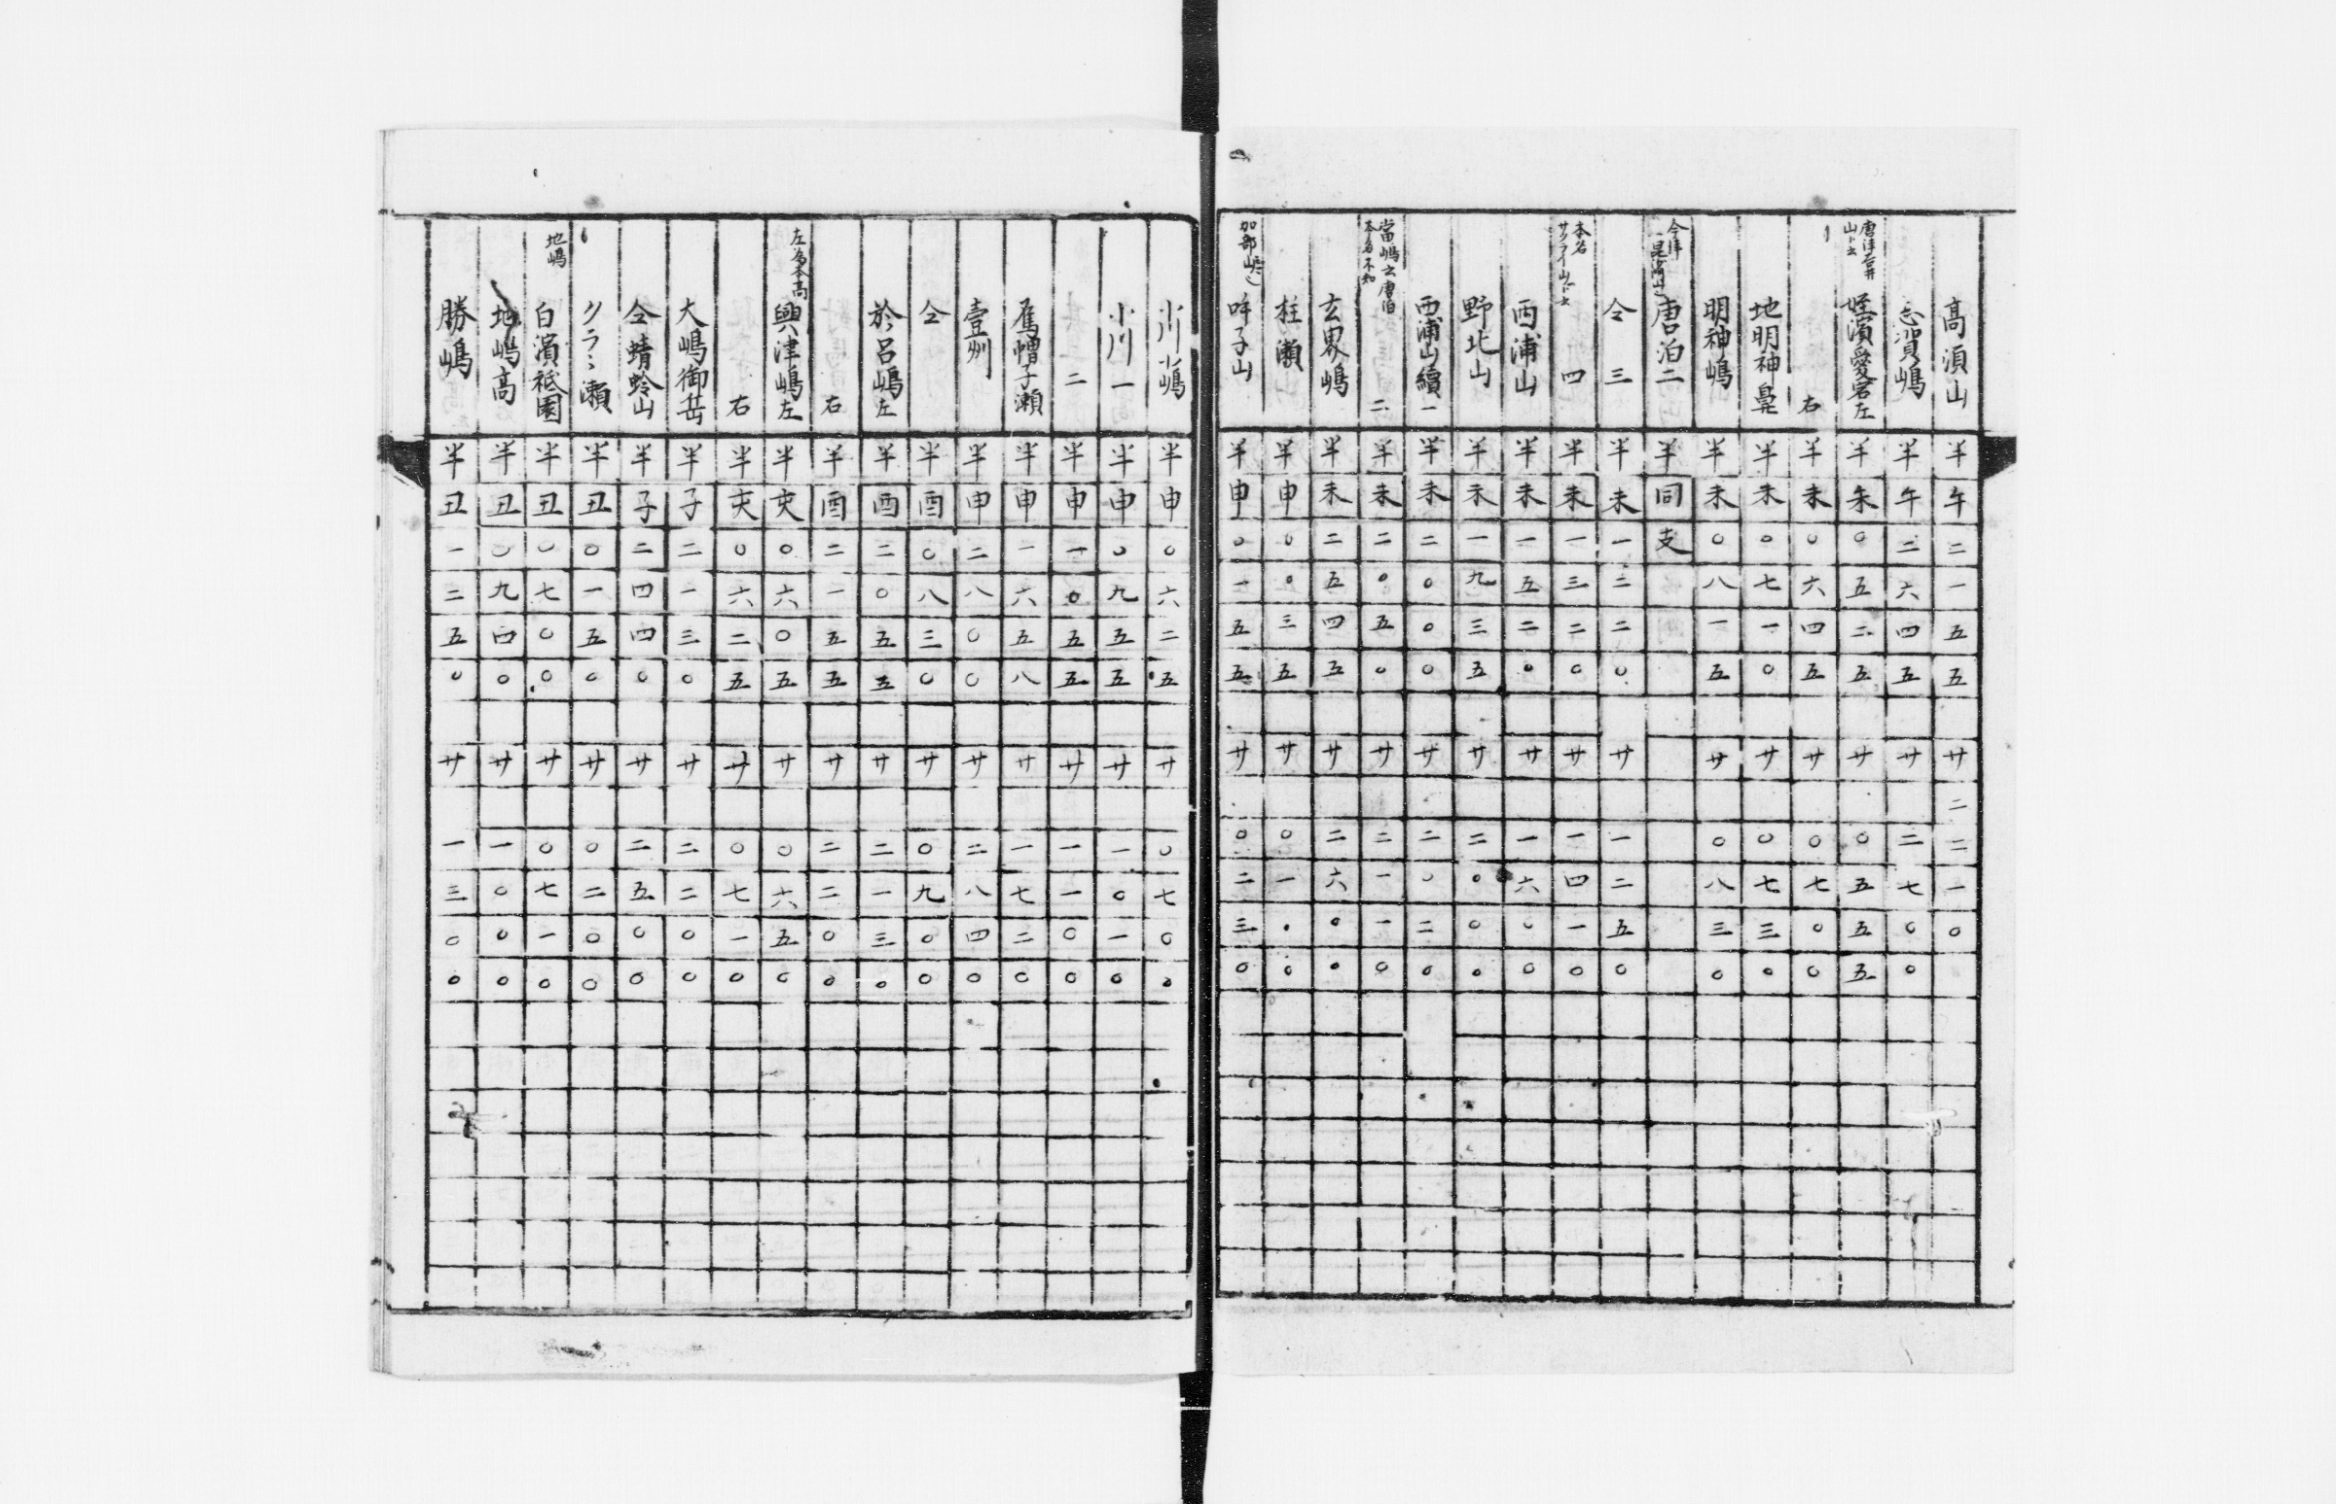 高須山 半午二一五五 廿二二一〇
志賀嶋 半午二六四五 廿二七〇〇
姪濱愛宕左 半未〇五二五 廿〇五五五
右 半未〇六四五 廿〇七〇〇
地明神鼻 半未〇七一〇 廿〇七三〇
明神嶋 半未〇八一五 廿〇八三〇
唐泊二 半同支
仝三 半未一二二〇 廿一二五〇
本名
四 半未一三二〇 廿一四一〇
西浦山 半未一五二〇 廿一六〇〇
野北山 半未一九三五 廿二〇〇〇
西浦山續一 半未二〇〇〇 廿二〇二〇
當嶋云唐泊
本名不知
二 半未二〇五〇 廿二一一〇
玄界嶋 半未二五四五 廿二六〇〇
柱瀬 半申〇〇三五 廿〇一〇〇
加部嶋
吽子山 半申〇一五五 廿〇二三〇
小川嶋 半申〇六二五 廿〇七〇〇
小川一 半申〇九五五 廿一〇一〇
二 半申一〇五五 廿一一〇〇
烏帽子瀬 半申一六五八 廿一七二〇
壹州 半申二八〇〇 廿二八四〇
仝 半酉〇八三〇 廿〇九〇〇
於呂嶋左 半酉二〇五五 廿二一三〇
右 半酉二一五五 廿二二〇〇
左為本高
興津嶋左 半亥〇六〇五 廿〇六五〇
右 半亥〇六二五 廿〇七一〇
大嶋御岳 半子二一三〇 廿二二〇〇
仝蜻蛉山 半子二四四〇 廿二五〇〇
クラミ瀬 半丑〇一五〇 廿〇二〇〇
地嶋
白濱祗園 半丑〇七〇〇 廿〇七一〇
地嶋高 半丑〇九四〇 廿一〇〇〇
勝嶋 半丑一二五〇 廿一三〇〇